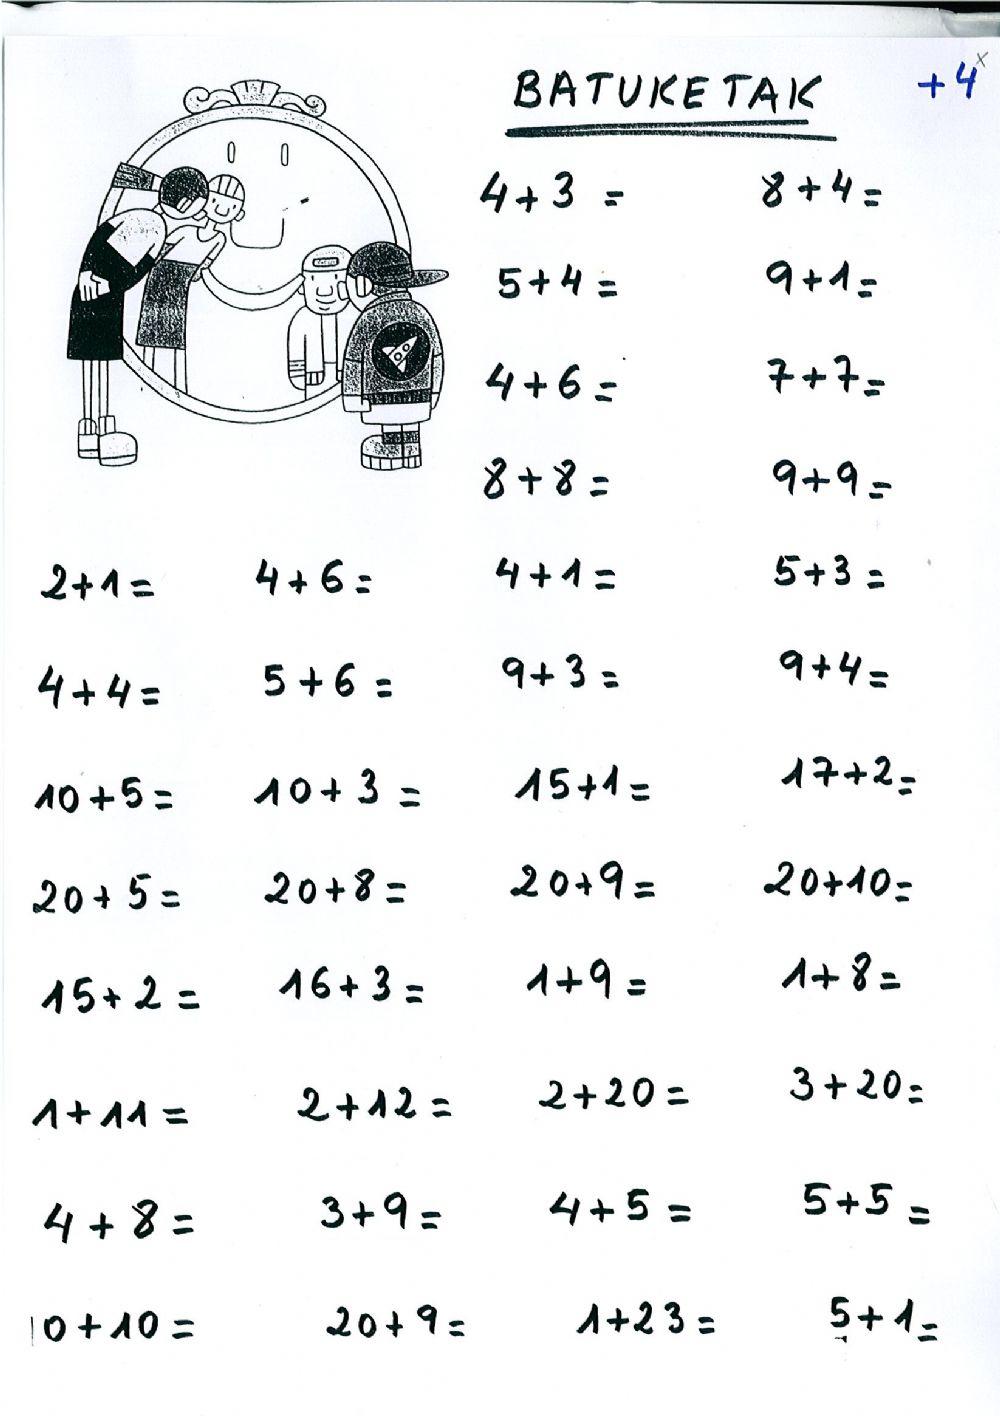 BATUKETAK +4x
4+3 = 8+4=
5+4= 9+1=
4+6= 7+7=
8+8= 9+9=
2+1= 4+6= 4+1= 5+3=
4+4= 5+6= 9+3= 9+4=
10+5= 10+3= 15+1= 17+2=
20+5= 20+8= 20+9= 20+10=
15+2= 16+3= 1+9= 1+8=
1+11= 2+12= 2+20= 3+20=
4+8= 3+9= 4+5= 5+5=
10+10= 20+9= 1+23= 5+1=